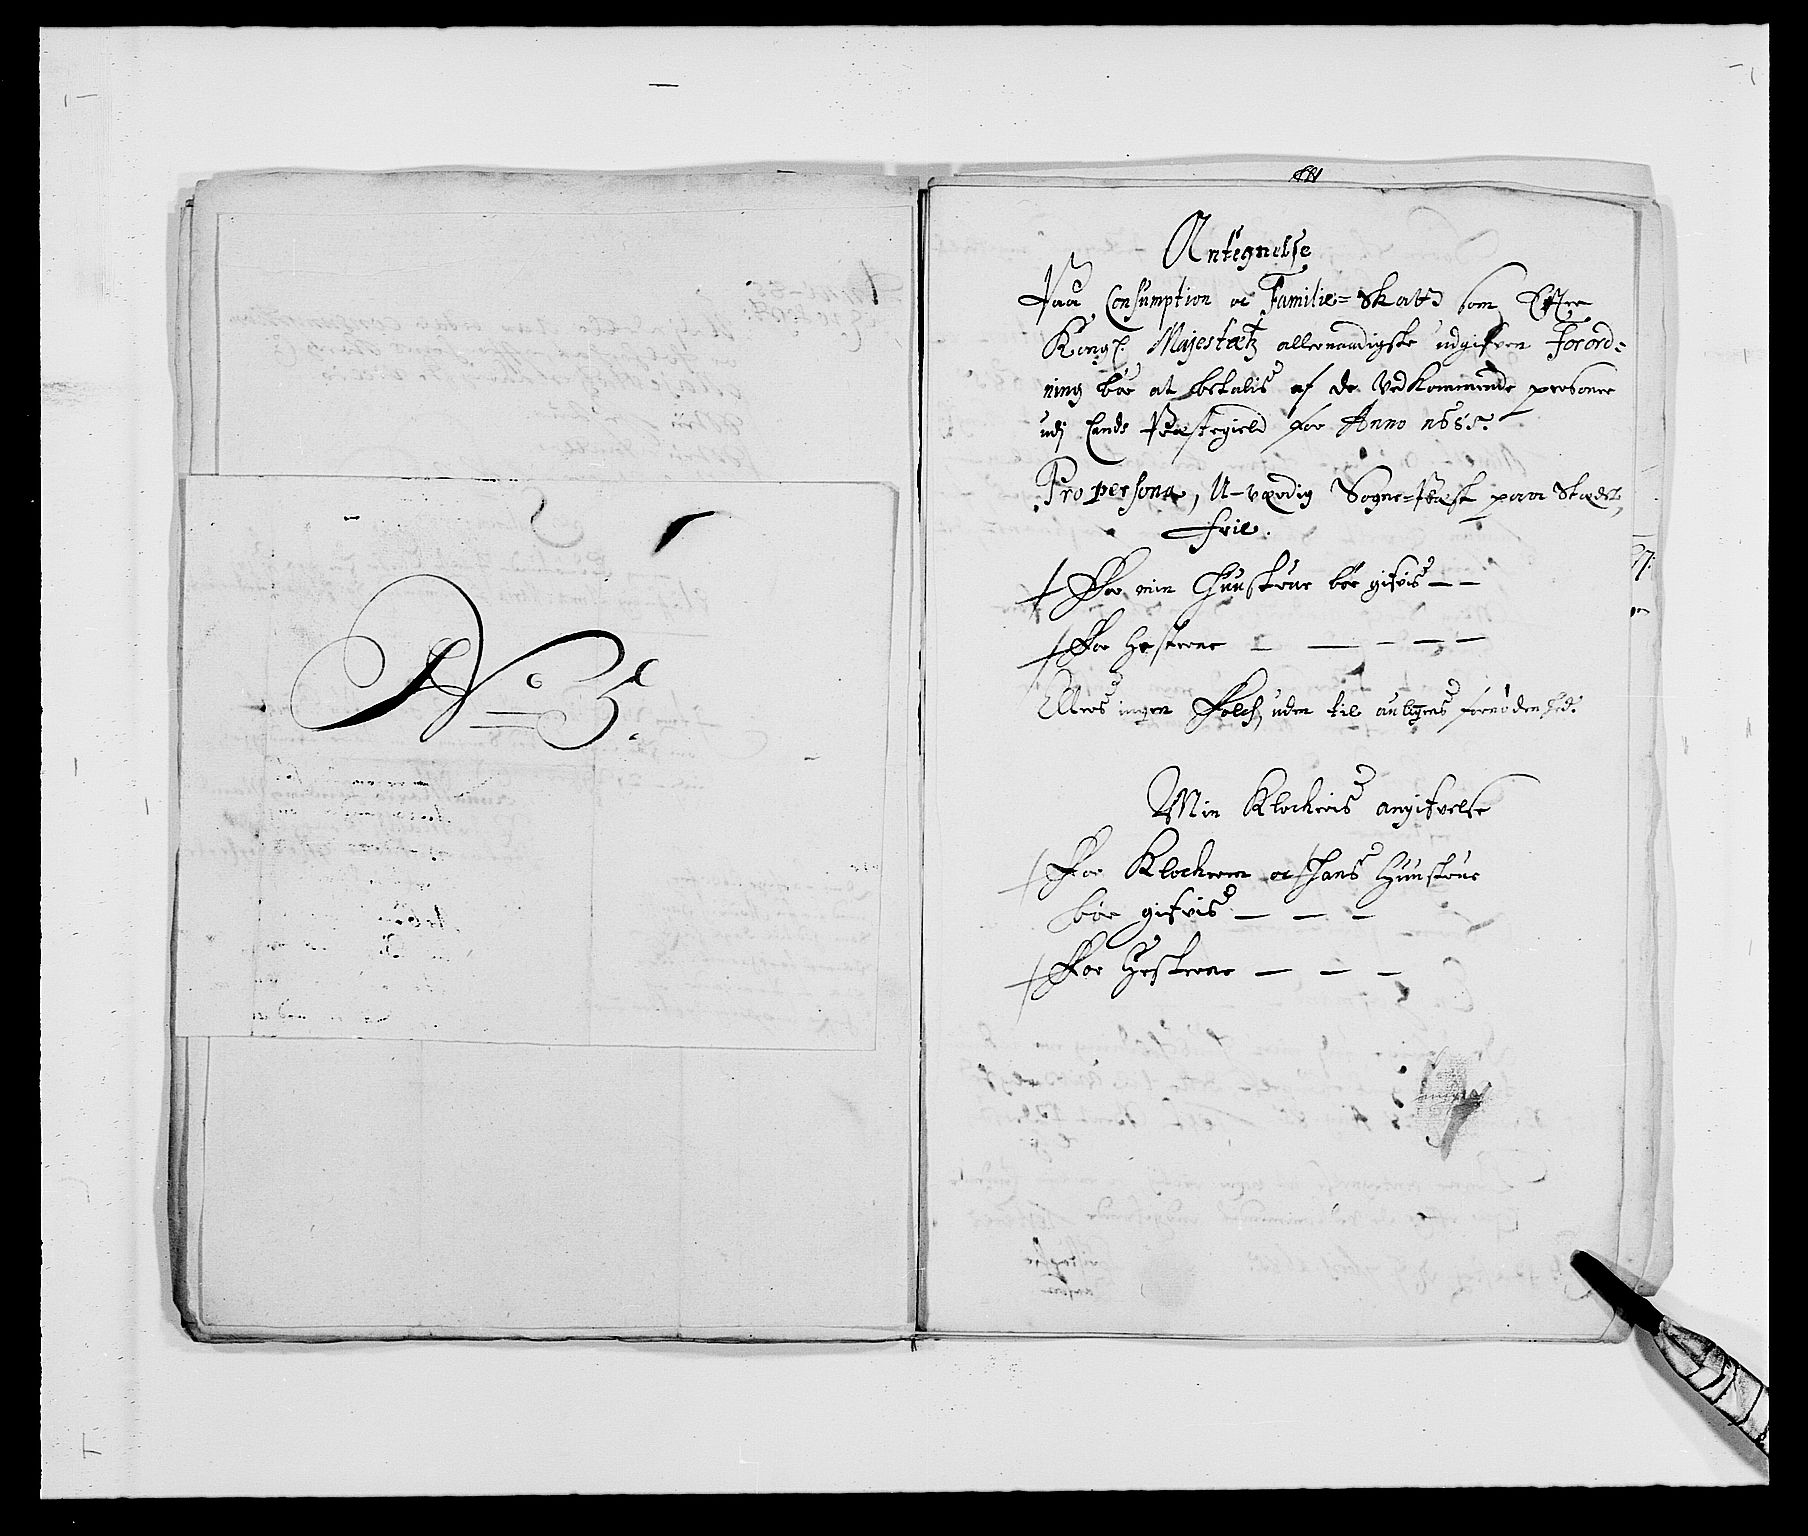 No 3.
Antegnelse
Paa Consumption oc Familie=Skatt som Efter
Kongl. Majestætz allernaadigste udgifven Forord=
ning bør at betalis af de vedkommende personer
udj Lands Præstegield for Anno 1686.
Pro persona, U-værdig Sogne=Præst paa Stædet,
frie.
For min Huustrue bør gifvis — —
For Hesterne — — — — —
Ellers ingen Folch, uden til aulgens fornødenhed.
Min Klocheris angifvelse
For Klocheren oc Hans Huustrue
bør gifvis — — —
For Hesterne — — —